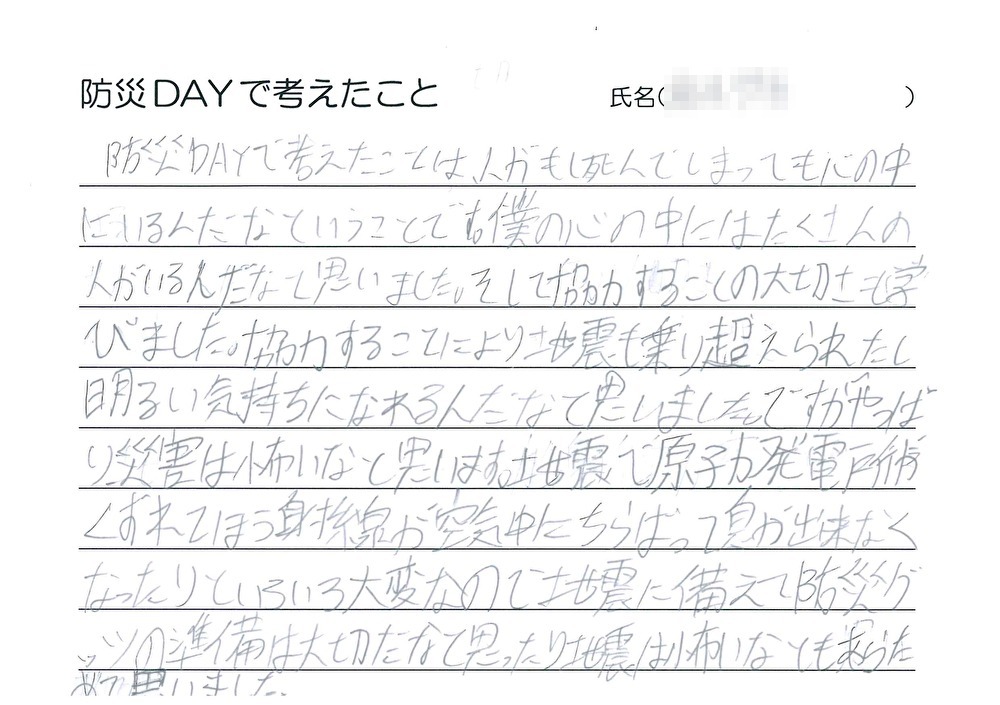 防災DAYで考えたこと 氏名( )
防災DAYで考えたことは、人がもし死んでしまっても心の中
にいるんだなということでも僕の心の中にはたくさんの
人がいるんだなと思いました。そして協力することの大切さも学
びました。協力することにより地震も乗り超えられたし
明るい気持ちになれるんだなて思いました。ですがやっぱ
り災害は怖いなと思います地震で原子力発電所が
くずれてほう射線が空気中にちらばって息が出来なく
なったりといろいろ大変なので地震に備えて防災グ
ッツの準備は大切だなて思ったり地震は怖いなともあらた
めて思いました。